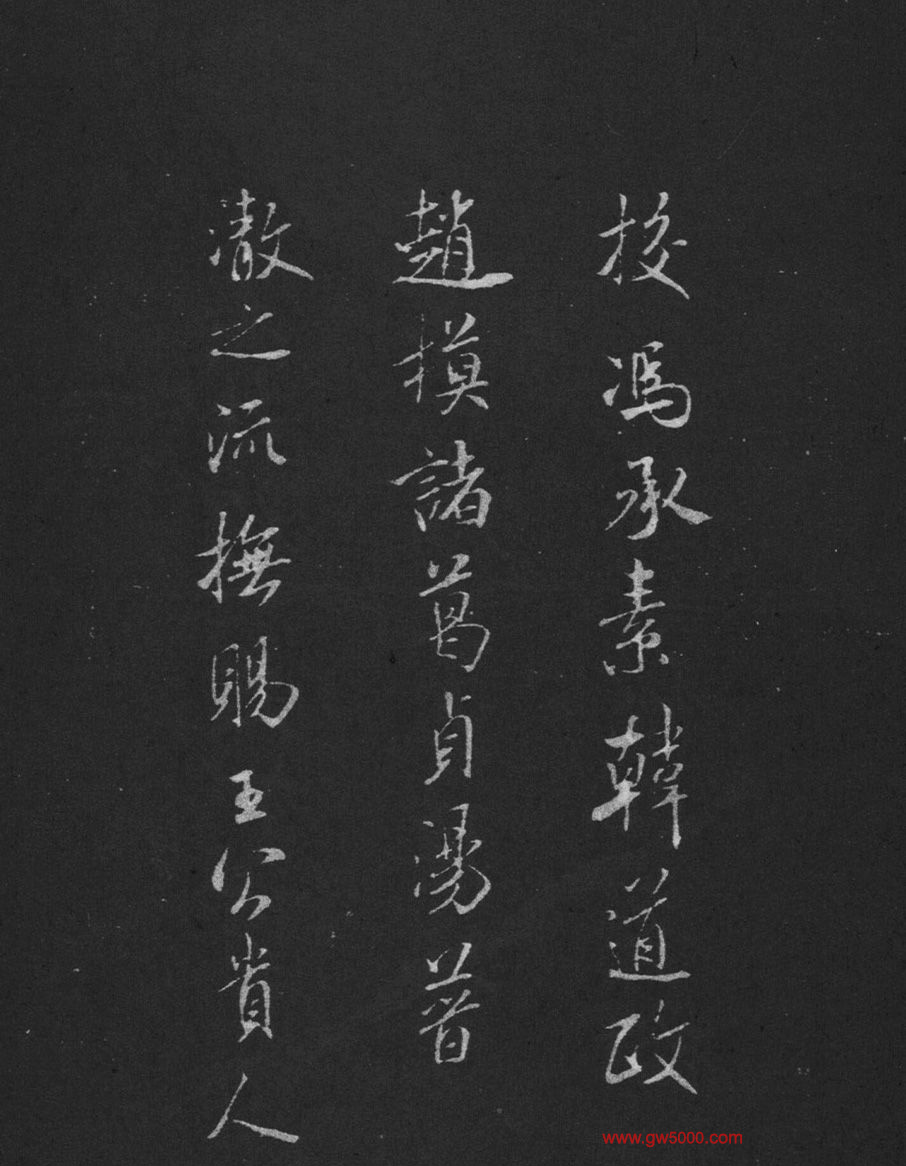 挍馮承素韓道政
趙摸諸葛貞湯普
澈之流撫賜王公貴人
www.gw5000.com